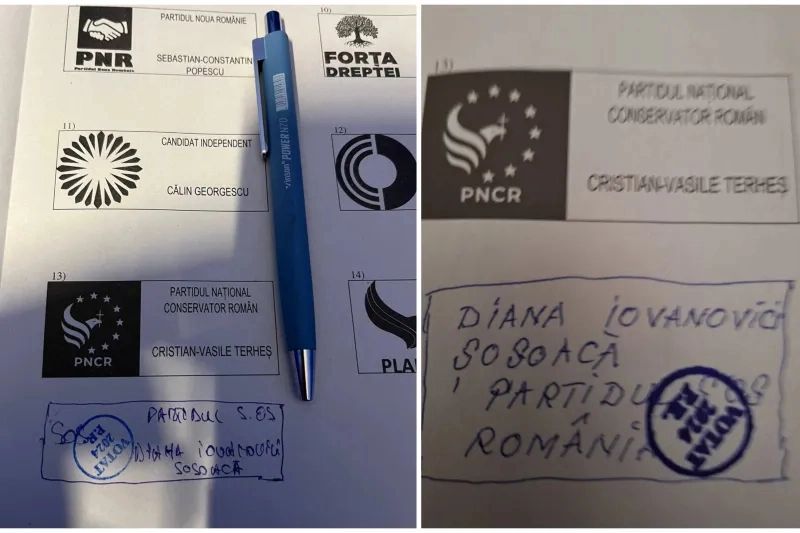 PARTIDUL NOUA ROMÂNIE
PNR
Partidul Noua România
SEBASTIAN-CONSTANTIN
POPESCU
10)
FORȚA
DREPTEI
11)
CANDIDAT INDEPENDENT
CĂLIN GEORGESCU
12)
POWER N70
13)
PARTIDUL NAȚIONAL
CONSERVATOR ROMÂN
PNCR
CRISTIAN-VASILE TERHEȘ
14)
PLA
PARTIDUL S.OS
SOS
VOTAT
2024
P.R.
DIANA IOVANOVICI
SOSOACĂ
13)
PARTIDUL NAȚIONAL
CONSERVATOR ROMÂN
PNCR
CRISTIAN-VASILE TERHEȘ
DIANA IOVANOVICI
ȘOȘOACĂ
PARTIDUL S.OS
ROMÂNI
VOTAT
2024
P.R.